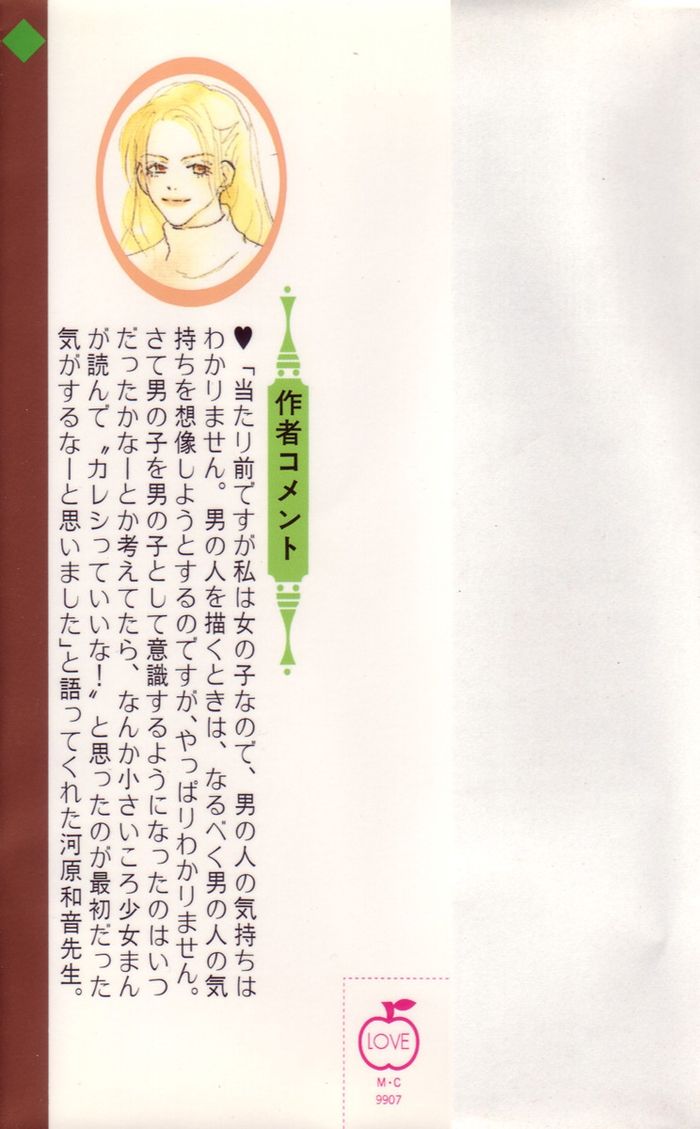 作者コメント
♥「当たり前ですが私は女の子なので、男の人の気持ちは
わかりません。男の人を描くときは、なるべく男の人の気
持ちを想像しようとするのですが、やっぱりわかりません。
さて男の子を男の子として意識するようになったのはいつ
だったかなーとか考えてたら、なんか小さいころ少女まん
が読んで〝カレシっていいな！〟と思ったのが最初だった
気がするなーと思いました」と語ってくれた河原和音先生。
LOVE
M・C
9907